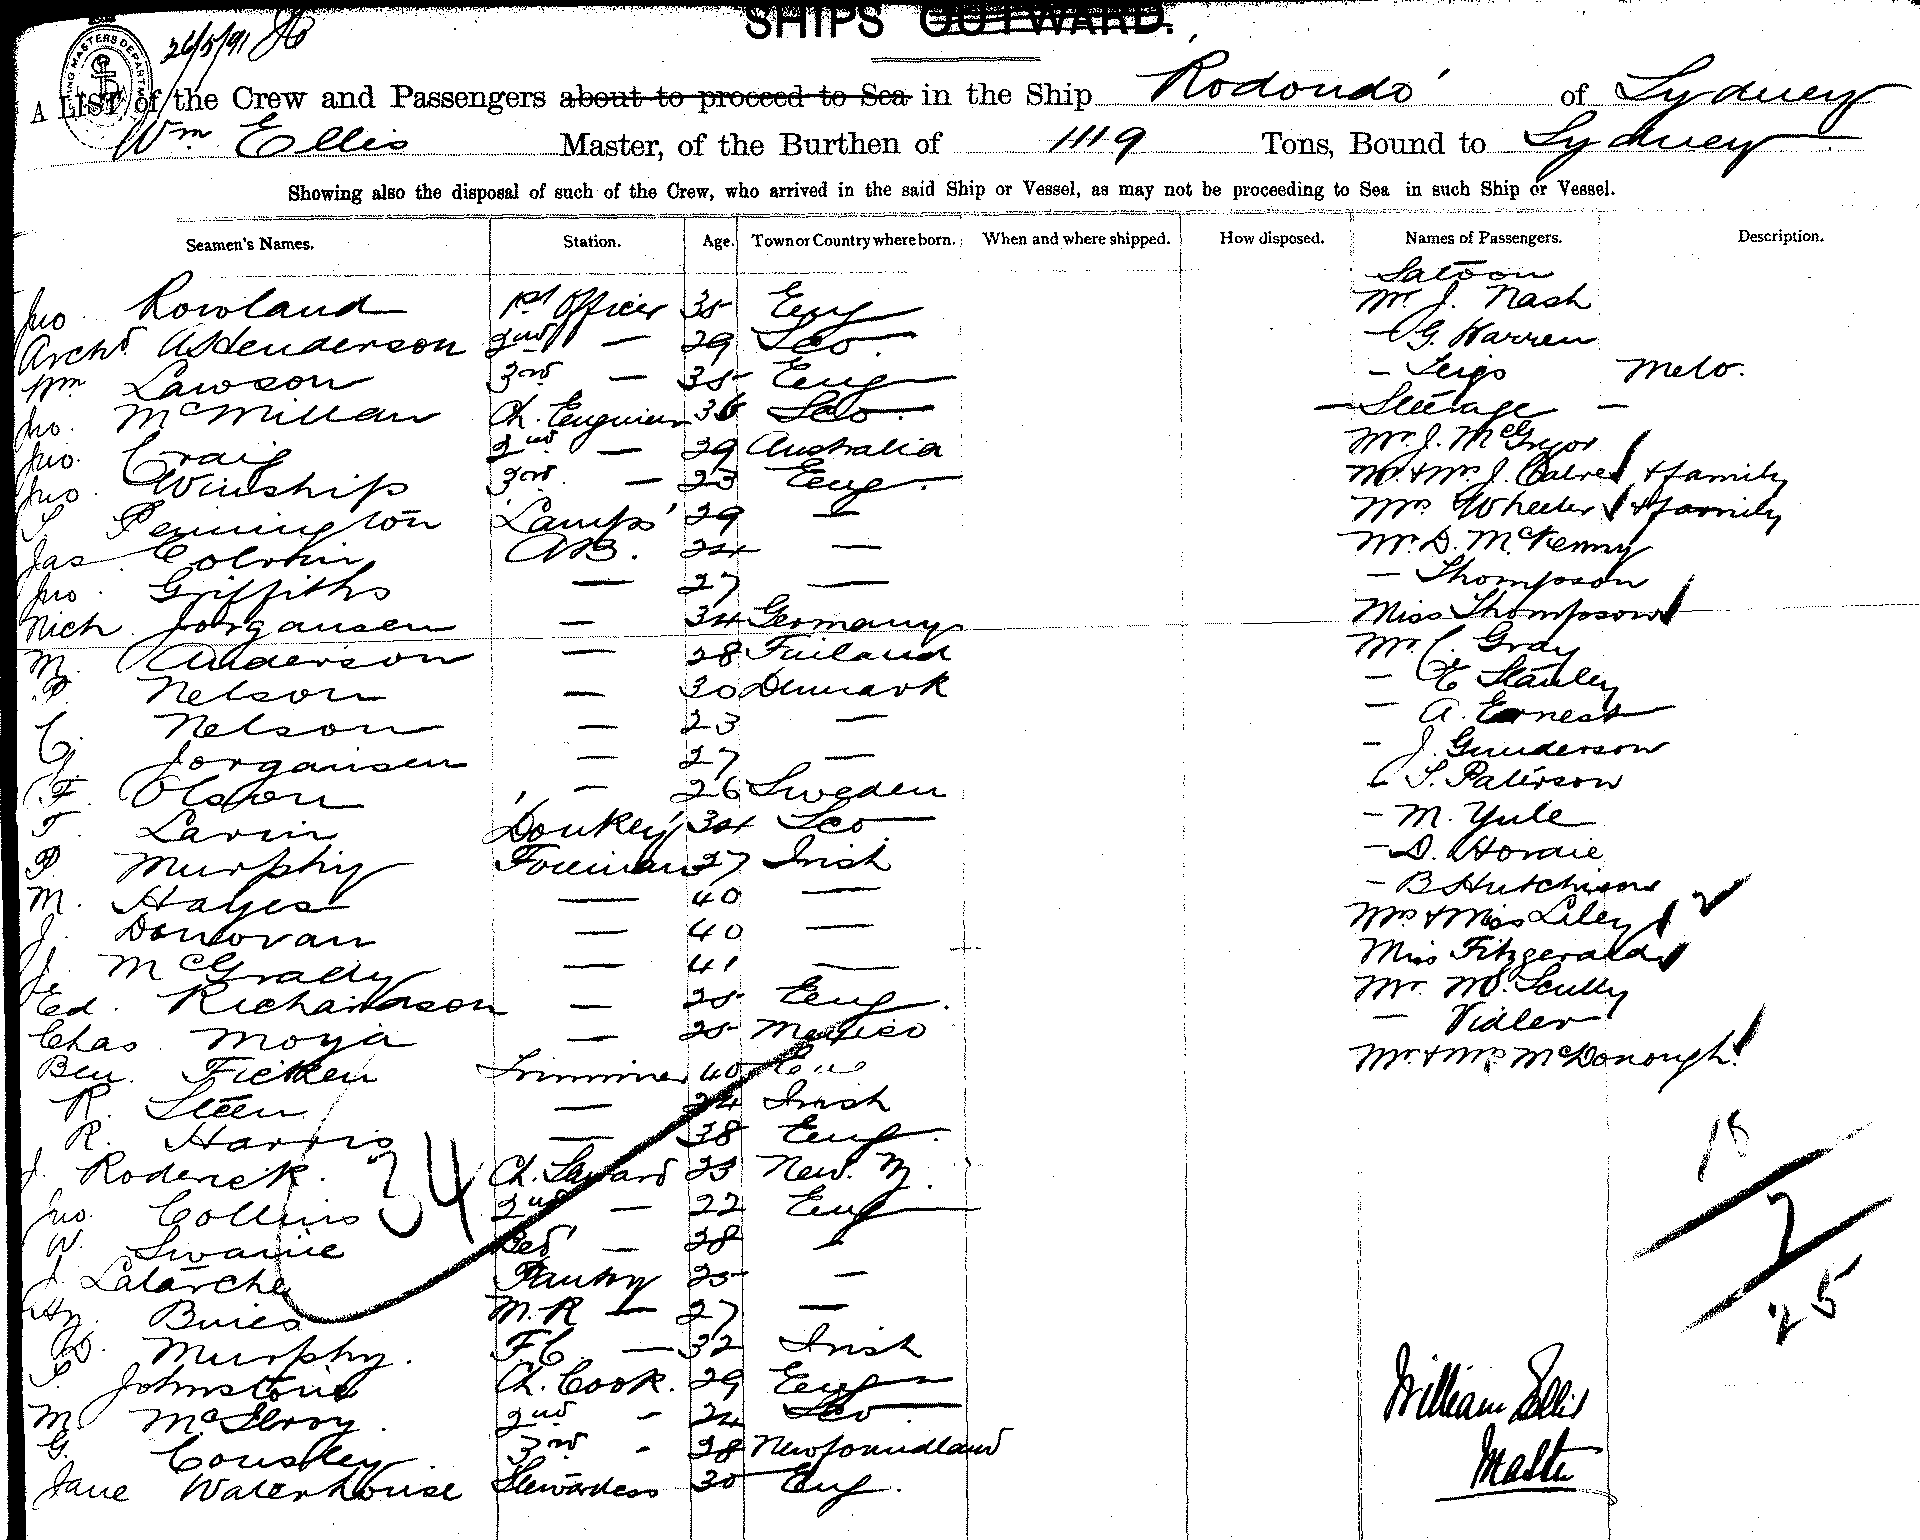 SHIPS OUTWARD.
26/5/91
A LIST of the Crew and Passengers about to proceed to Sea in the Ship Rodondo of Sydney
Wm Ellis Master, of the Burthen of 1119 Tons, Bound to Sydney
Showing also the disposal of such of the Crew, who arrived in the said Ship or Vessel, as may not be proceeding to Sea in such Ship or Vessel.
Seamen's Names. Station. Age. Town or Country where born. When and where shipped. How disposed. Names of Passengers. Description.
Saloon
Jno Rowland 1st Officer 35 Eng Mr J. Nash
Archd A Henderson 2nd — 29 Sco. — G. Warren
Wm Lawson 3rd — 35 Eng —
Jno. McMillan Ch. Engineer 36 Sco. — Steerage —
Jno. Craig 2nd — 29 Australia Mr. J. McGregor
Jno. Winship 3rd — 23 Eng. Mr. & Mrs J. & family
S Pennington 'Lamps' 29 — Mrs Wheeler & family
Jas. Colvin AB. 24 — Mr. D. McKenny
Jno. Griffiths — 27 — — Thompson
Nich Jorgansen — 34 Germany Miss Thompson
M. Anderson — 28 Finland Mr C. Gray
P. Nelson — 30 Denmark — E Stanley
C. Nelson — 23 — — A. Ernest
G. Jorgansen — 27 — — J. Gunderson
F. Olson — 26 Sweden S. Paterson
T. Lavin 'Donkey' 34 Sco — M. Yule
P. Murphy Foreman 27 Irish — D. Hordie
M. Hayes — 40 — — B Hutchison
J. Donovan — 40 — Mrs & Miss Liley
J. McGrady — 41 — Miss Fitzgerald
Ed. Richardson — 25 Eng. Mr. M. Scully
Chas Moya — 25 Mexico — Vidler
Ben. Ficken Trimmer 40 Mr. & Mrs McDonough
R. Steen — 24 Irish
R. Harris — 38 Eng.
J. Roderick. Ch. Steward 23 New. Z. 18
34
Jno. Collins 2nd — 22 Eng 7
W. Swaine Bed' — 28 —
J. Latarche Pantry 25 — 25
Hy. Buies M.R — 27 —
D. Murphy. F.C. — 32 Irish
S. Johnstone Ch. Cook. 29 Eng William Ellis
M McIlroy. 2nd - 24 Sco.
G. Cousley 3rd - 28 Newfoundland Master
Jane Waterhouse Stewardess 30 Eng.